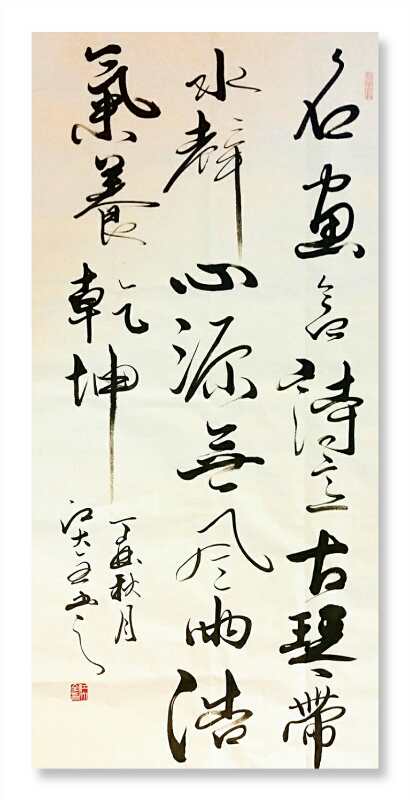 名畫含詩意古琴帶
水聲心源無風雨浩
氣養乾坤
秋月
書之